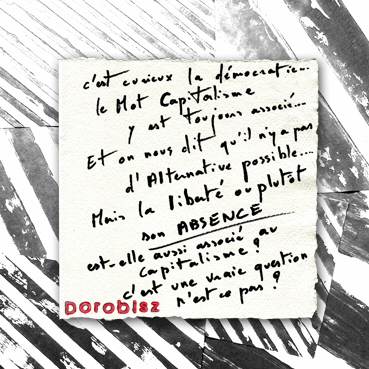 c'est curieux la démocratie...
le Mot Capitalisme
y est toujours associé...
Et on nous dit qu'il n'y a pas
d'Alternative possible...
Mais la liberté ou plutôt
son ABSENCE
est-elle aussi associé au
Capitalisme ?
c'est une vraie question
n'est ce pas ?
DOROBISZ